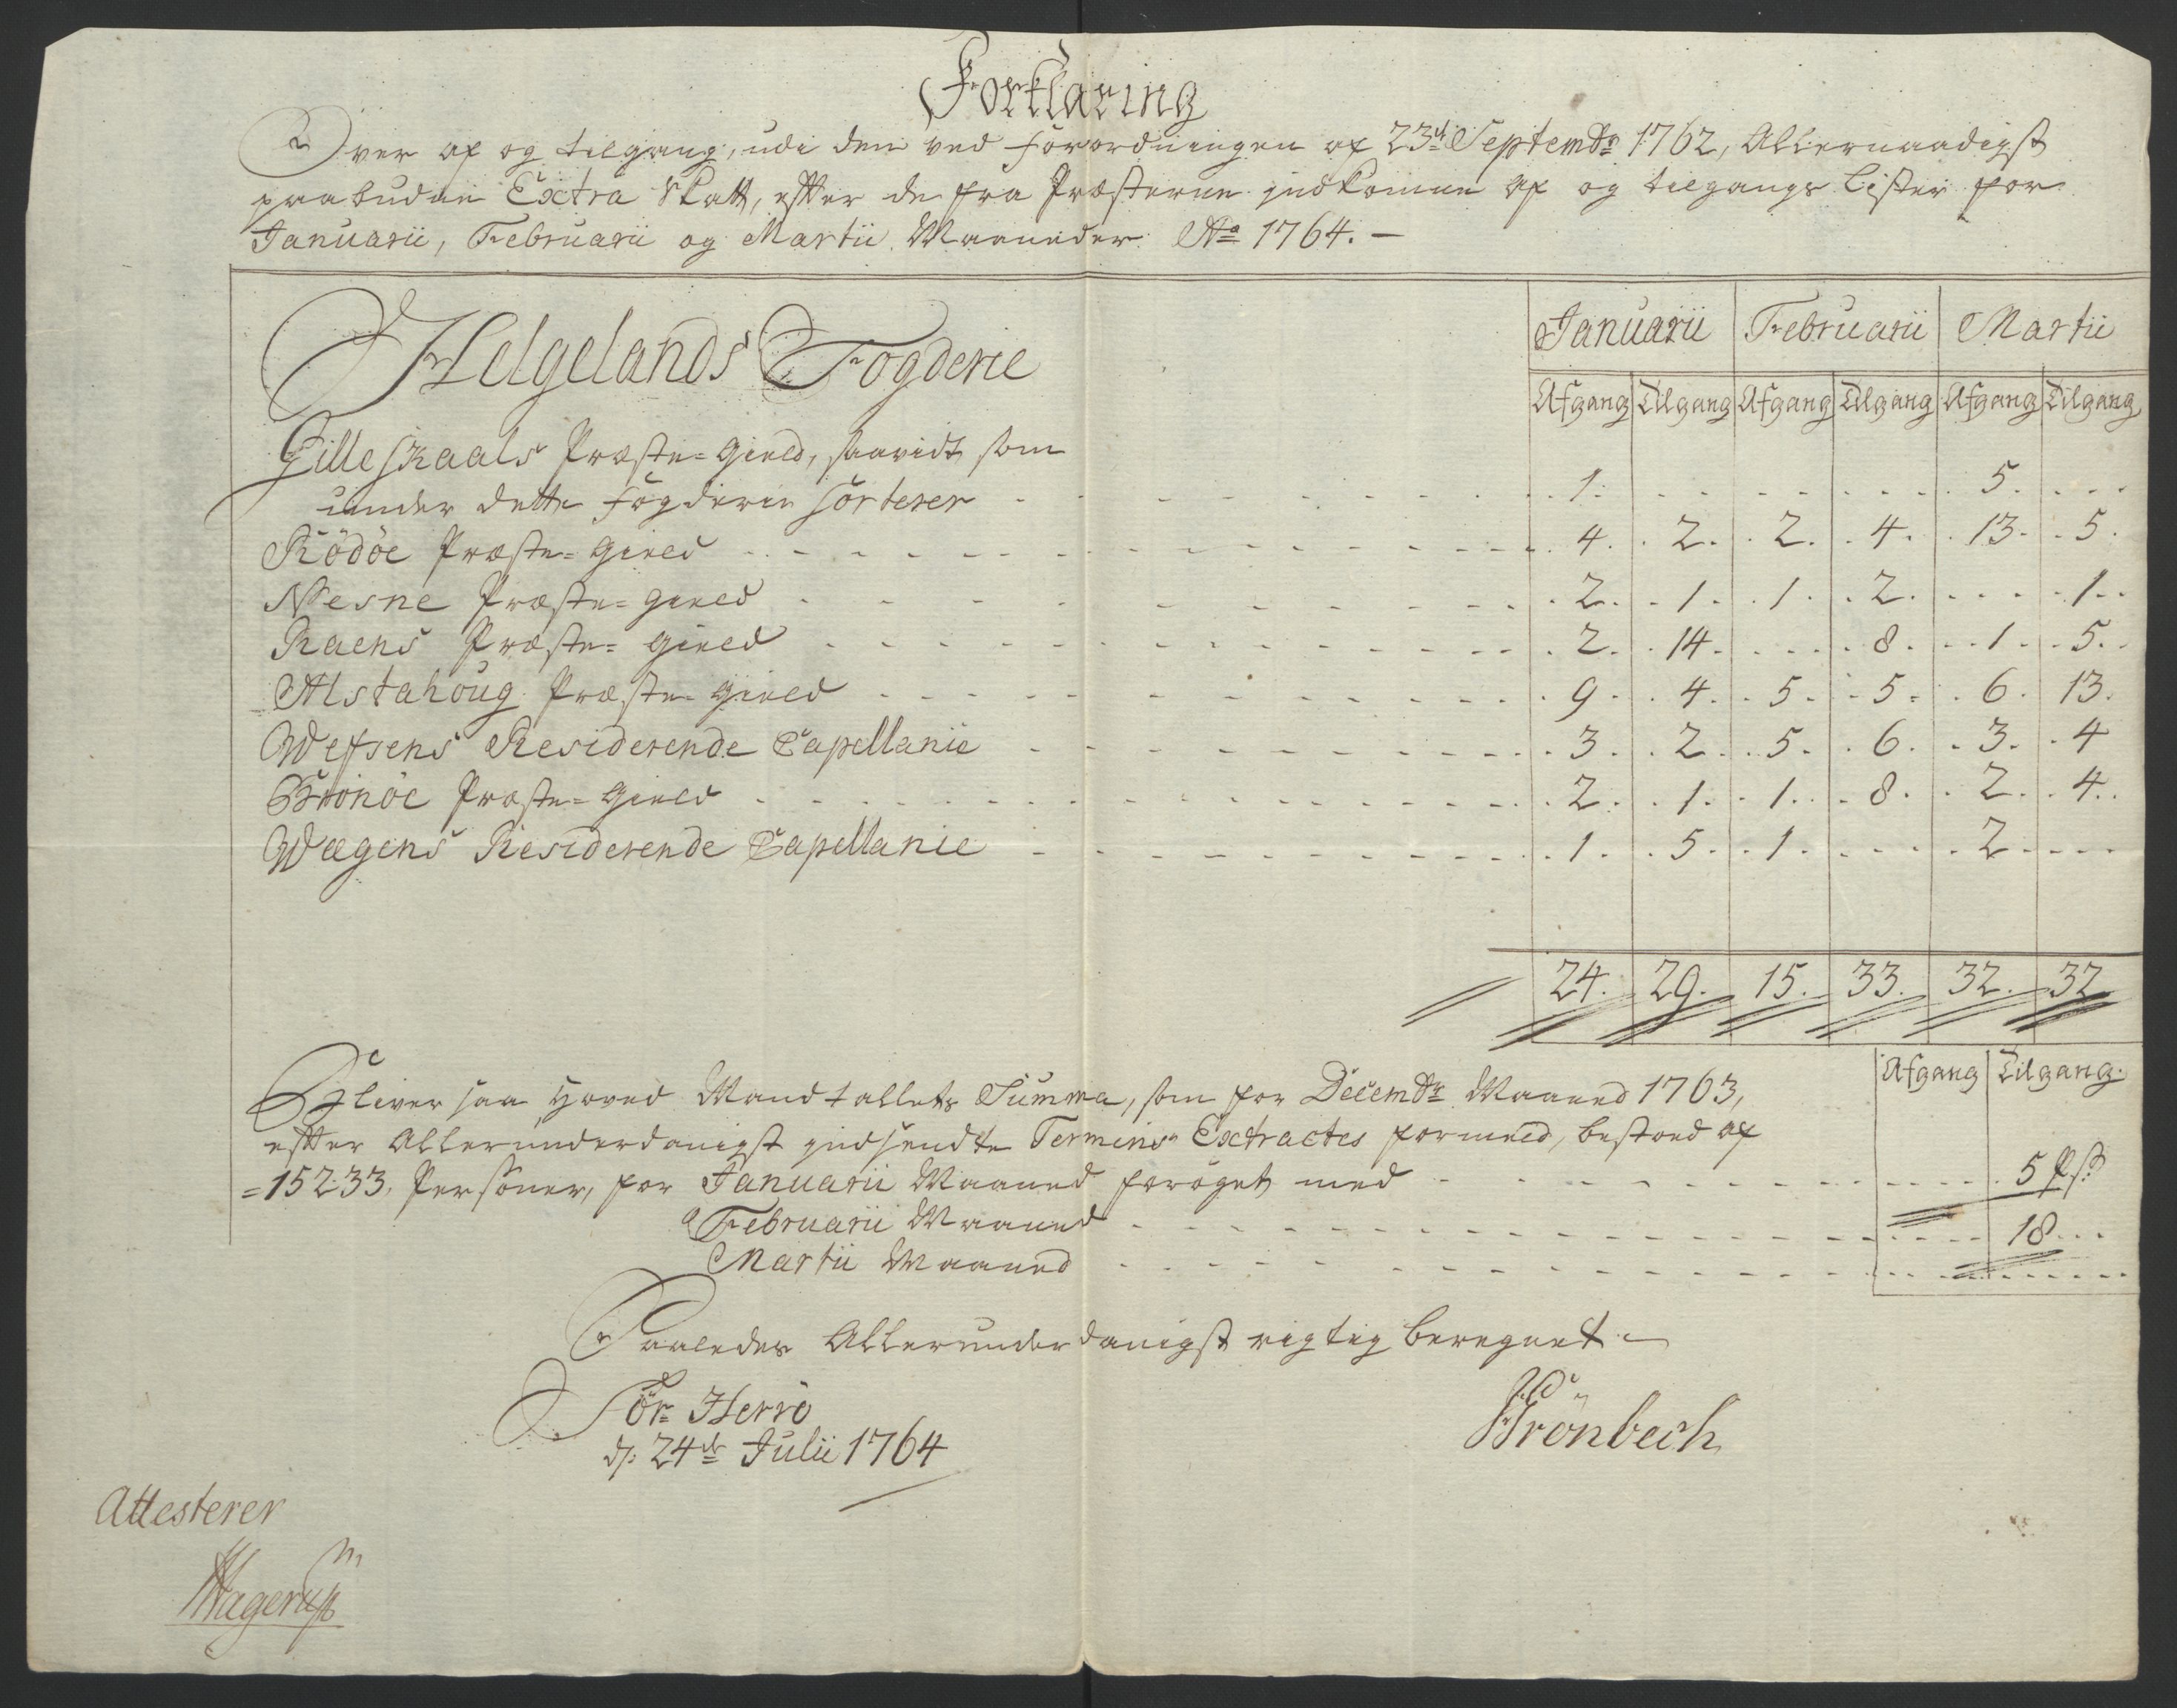 Forklaring
Over af og tilgang, udi den ved Forordningen af 23de Septembr 1762, Allernaadigst
paabudne Extra Skatt, efter de fra Præsterne indkomne Af og tilgangs Lister for
Januarii, Februarii og Martii Maaneder Ao 1764. -
Helgelands Fogderie
Januarii Februarii Martii
Afgang Tilgang Afgang Tilgang Afgang Tilgang
Gilleskaals Præste-Gield, saavidt som
under dette Fogderie sorterer 1. 5.
Rödöe Præste-Gield 4. 2. 2. 4. 13. 5.
Nesne Præste-Gield 2. 1. 1. 2. 1.
Raens Præste-Gield 2. 14. 8. 1. 5.
Alstahoug Præste-Gield 9. 4. 5. 5. 6. 13.
Wefsens Residerende Capellanie 3. 2. 5. 6. 3. 4
Brönöe Præste-Gield 2. 1. 1. 8. 2. 4.
Wægens Residerende Capellanie 1. 5. 1. 2.
24. 29. 15. 33. 32. 32
Afgang Tilgang.
Bliver saa Hoved Mandtallets Summa, som for Decembr Maaned 1763,
efter Allerunderdanigst indsendte Termins Extractes formeld, bestoed af
=15233, Personer, for Januarii Maaned forøget med 5 Ps:
Februarii Maaned 18
Martii Maaned
Saaledes Allerunderdanigst rigtig beregnet
Sör Herrö
d: 24de Julii 1764
Brönbech
Attesterer
Hagerup